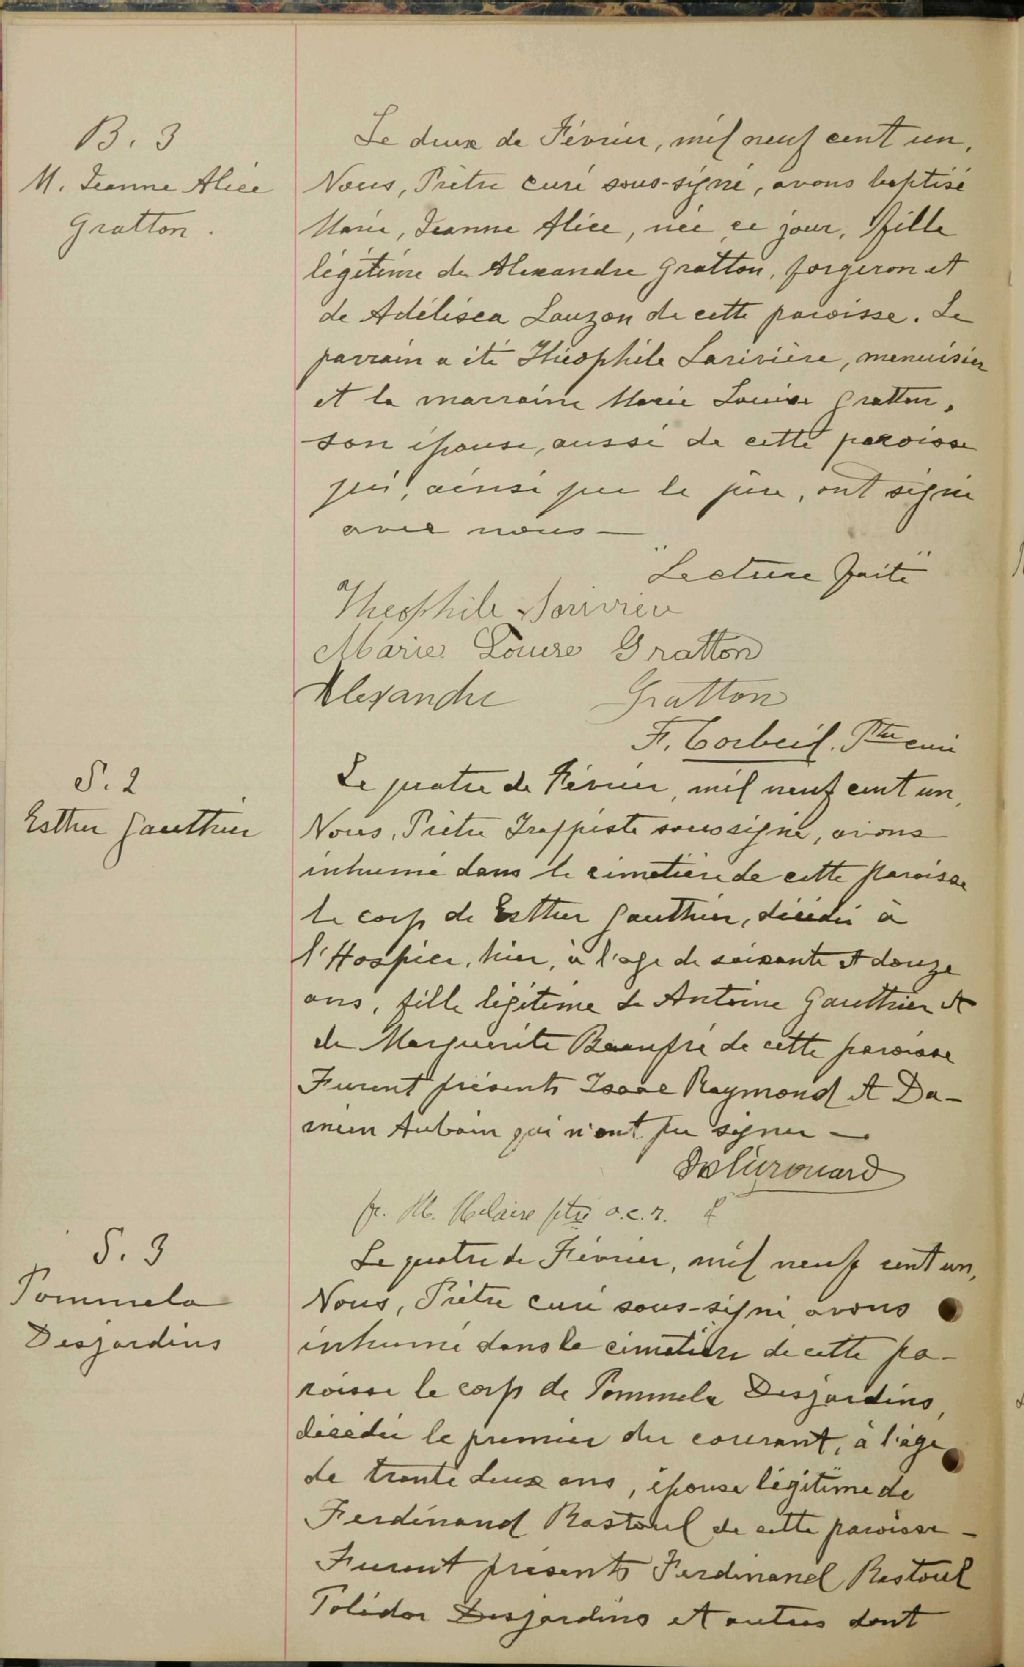 B. 3
M. Jeanne Alice
Gratton.
Le deux de Février, mil neuf cent un,
Nous, Prêtre curé sous-signé, avons baptisé
Marie, Jeanne Alice, née ce jour, fille
légitime de Alexandre Gratton, forgeron et
de Adélisca Lauzon de cette paroisse. Le
parrain a été Théophile Larivière, menuisier
et la marraine Marie Louise Gratton,
son épouse, aussi de cette paroisse
qui, ainsi que le père, ont signé
avec nous —
"Lecture faite"
Theophile Lariviere
Marie Louise Gratton
Alexandre Gratton
F. Corbeil. Ptre curé
S. 2
Esther Gauthier
Le quatre de Février, mil neuf cent un,
Nous, Prêtre Trappiste soussigné, avons
inhumé dans le cimetière de cette paroisse
le corp de Esther Gauthier, décédée à
l'Hospice, hier, à l'age de soixante et douze
ans, fille légitime de Antoine Gauthier et
de Marguerite Beaupré de cette paroisse
Furent présents Isaac Raymond et Da-
mien Aubain qui n'ont pu signer —
fr. M. Hilaire ptre o.c.r.
S. 3
Pommela
Desjardins
Le quatre de Février, mil neuf cent un,
Nous, Prêtre curé sous-signé avons
inhumé dans le cimetière de cette pa-
roisse le corp de Pommela Desjardins,
décédée le premier du courant, à l'âge
de trente deux ans, épouse légitime de
Ferdinand Rastoul de cette paroisse —
Furent présents Ferdinand Rastoul
Polidor Desjardins et autres dont